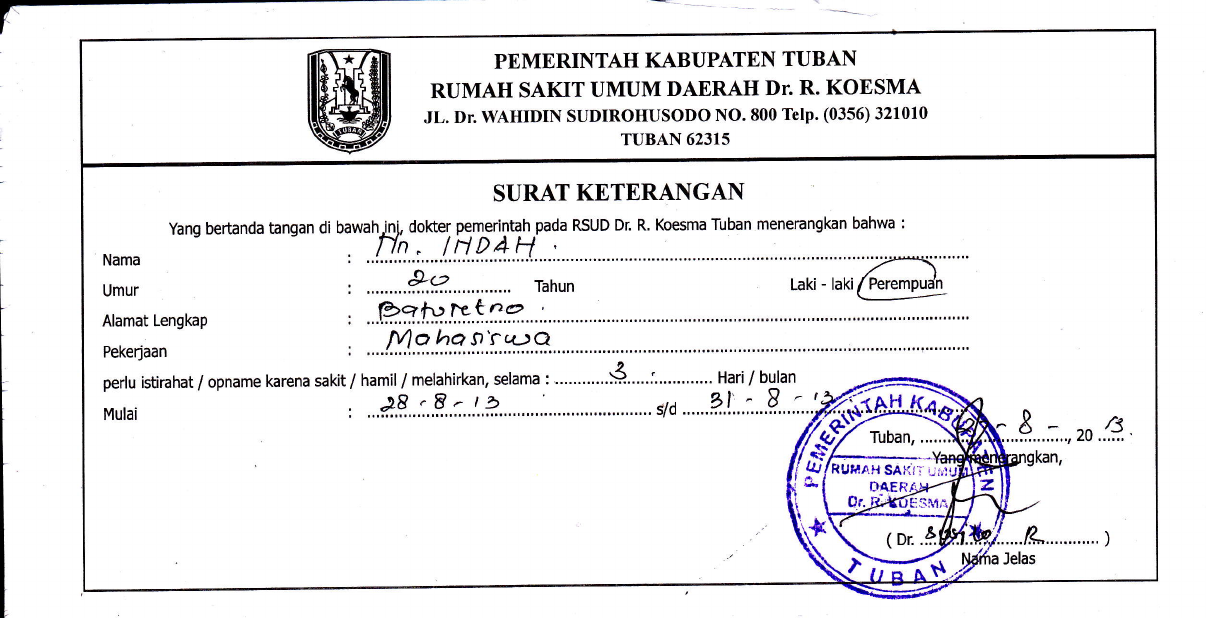 PEMERINTAH KABUPATEN TUBAN
RUMAH SAKIT UMUM DAERAH Dr. R. KOESMA
JL. Dr. WAHIDIN SUDIROHUSODO NO. 800 Telp. (0356) 321010
TUBAN 62315
TUBAN
SURAT KETERANGAN
Yang bertanda tangan di bawah ini, dokter pemerintah pada RSUD Dr. R. Koesma Tuban menerangkan bahwa :
Nama : Nn. INDAH
Umur : 20 Tahun Laki - laki / Perempuan
Alamat Lengkap : Baturetno
Pekerjaan : Mahasiswa
perlu istirahat / opname karena sakit / hamil / melahirkan, selama : 3 Hari / bulan
Mulai : 28 - 8 - 13 s/d 31 - 8 - 13
Tuban, - 8 - , 20 13
Yang menerangkan,
( Dr. R )
Nama Jelas
PEMERINTAH KABUPATEN
RUMAH SAKIT UMUM
DAERAH
Dr. R. KOESMA
TUBAN